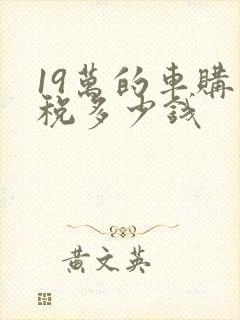 19萬的車購
稅多少錢
黃文英